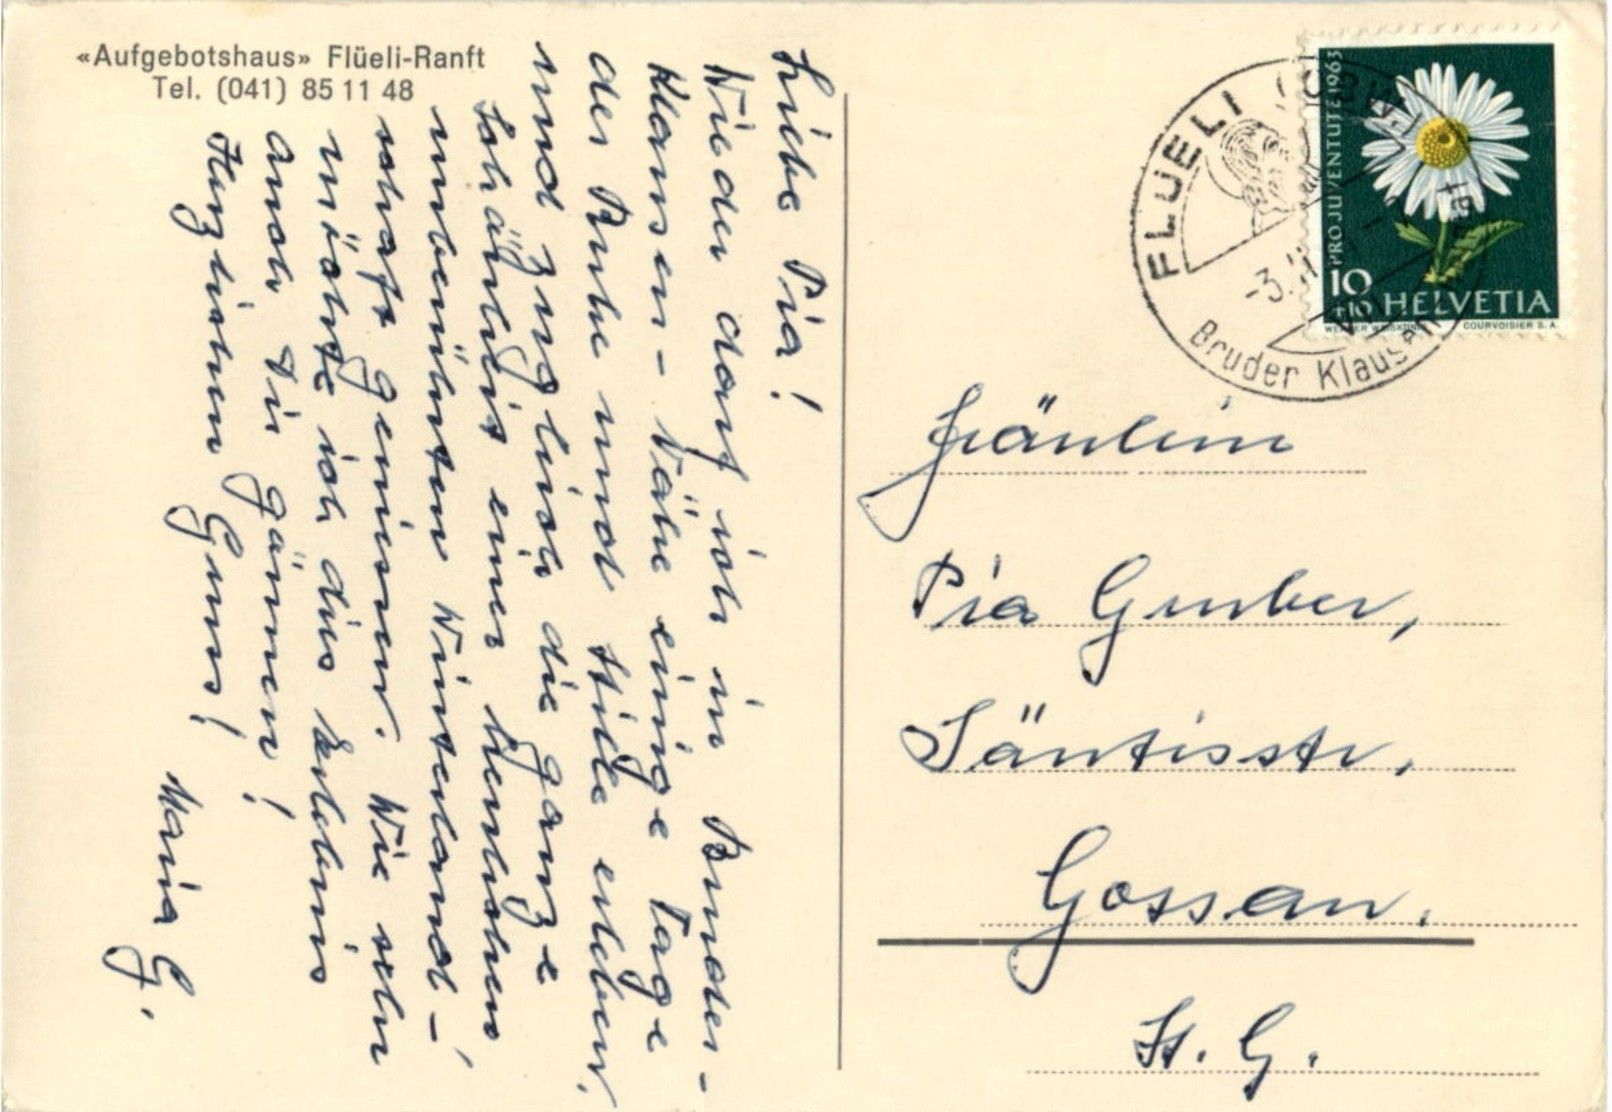 «Aufgebotshaus» Flüeli-Ranft
Tel. (041) 85 11 48
Liebe Pia!
Wieder darf ich in Bruder-
Klausen-Nähe einige Tage
der Ruhe und Stille erleben,
und zugleich die ganze
Schönheit einer herrlichen
unberührten Winterland-
schaft geniessen. Wie sehr
möchte ich dies Erlebnis
auch Dir gönnen!
Herzlichen Gruss!
Maria G.
FLÜELI (OBW.)
-3.
Bruder Klausen
PRO JUVENTUTE 1963
10
+10 HELVETIA
WERNER WEISKÖNIG COURVOISIER S.A.
Fräulein
Pia Gruber,
Säntisstr,
Gossau.
St. G.